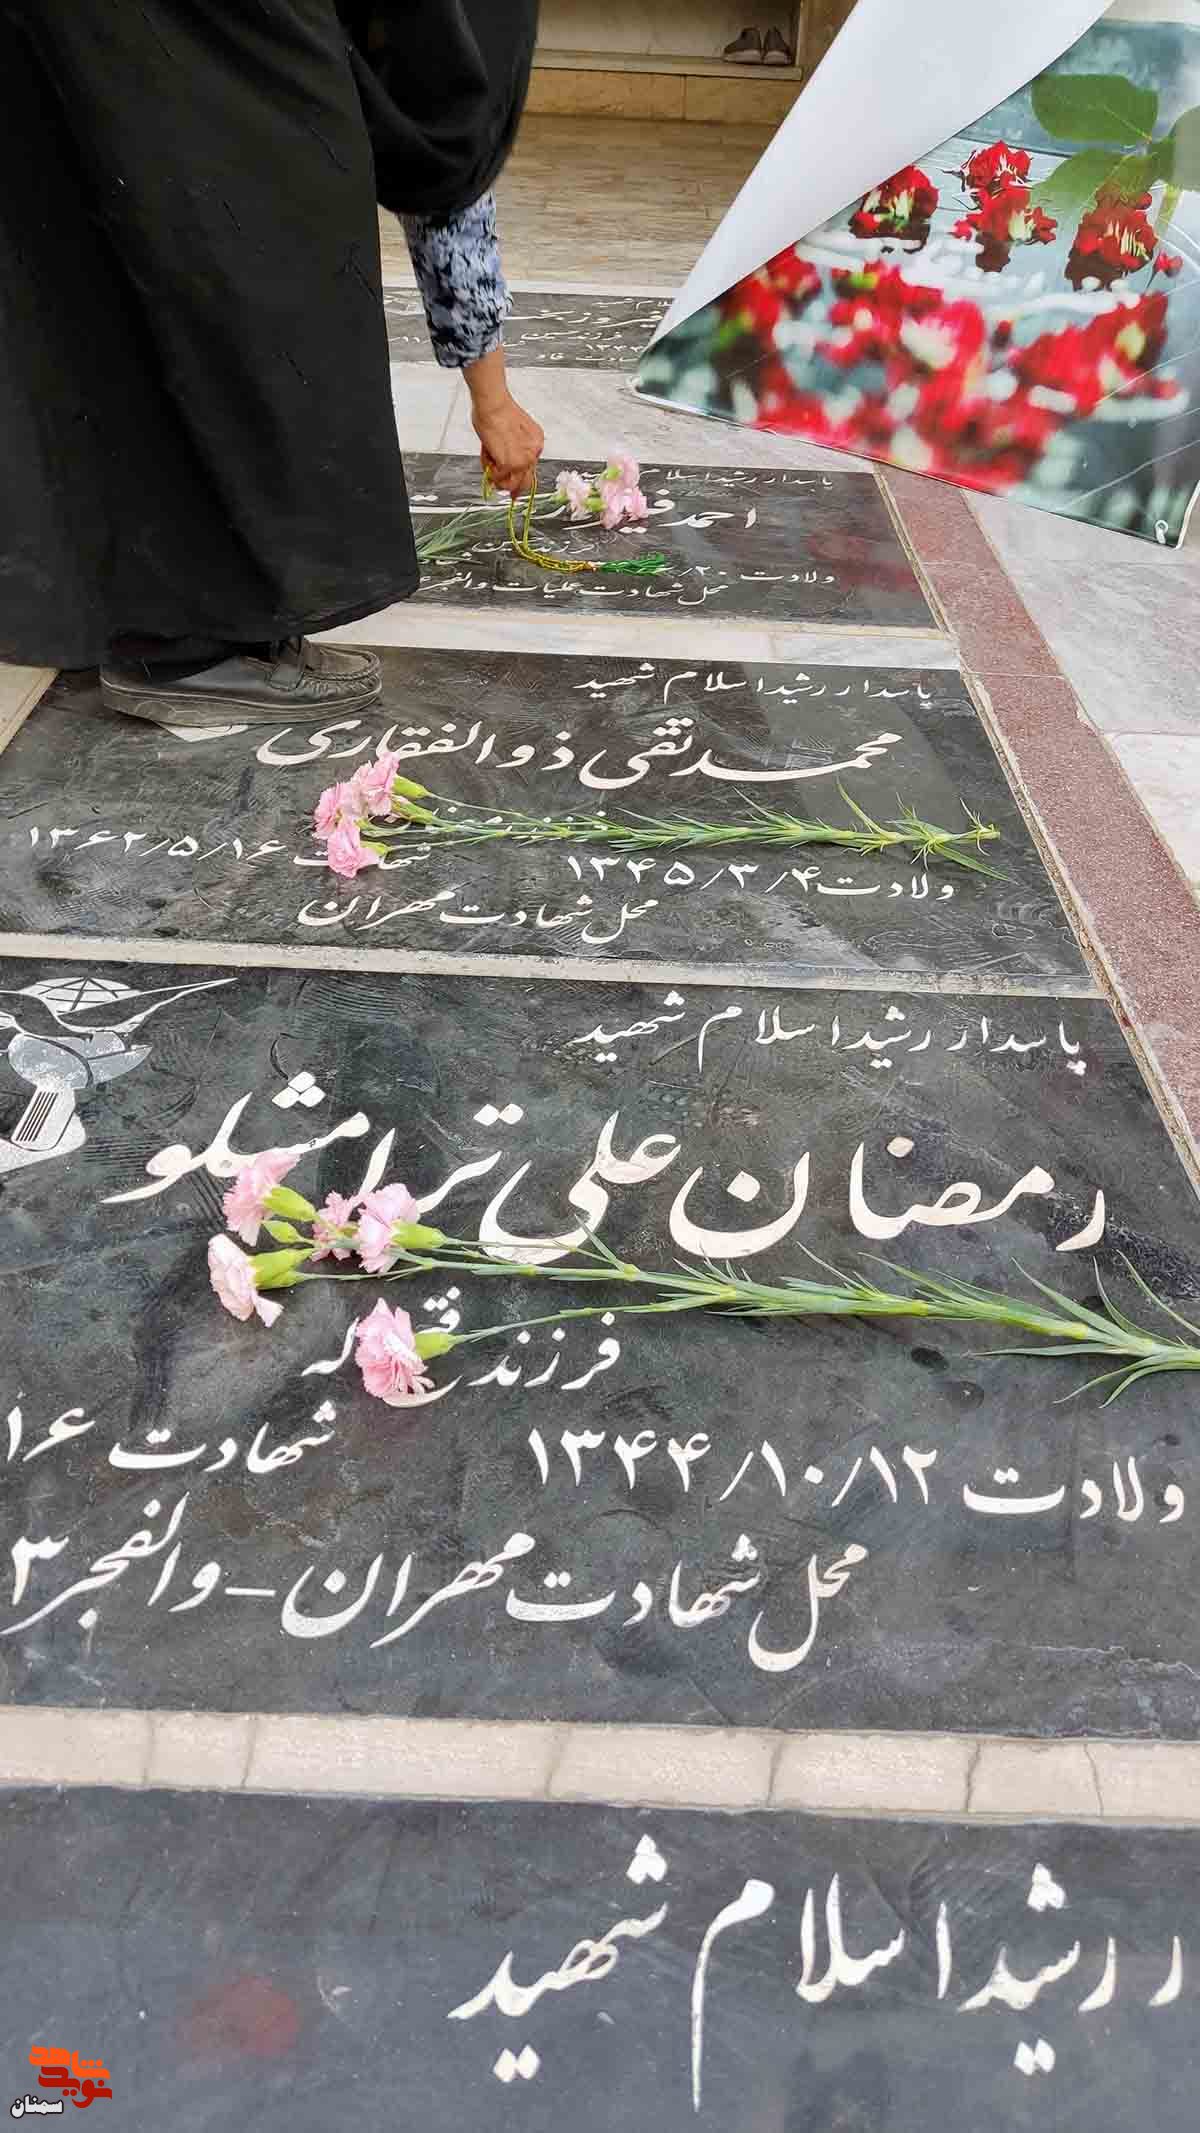 پاسدار رشید اسلام
احمد
ولادت ۲۰/
محل شهادت عملیات والفجر
پاسدار رشید اسلام شهید
محمد تقی ذوالفقاری
فرزند
ولادت ۱۳۴۵/۳/۴ شهادت ۱۳۶۲/۵/۱۶
محل شهادت مهران
پاسدار رشید اسلام شهید
رمضان علی ترامشلو
فرزند
ولادت ۱۳۴۴/۱۰/۱۲ شهادت ۱۶
محل شهادت مهران - والفجر ۳
ر رشید اسلام شهید
نوید شاهد
سمنان